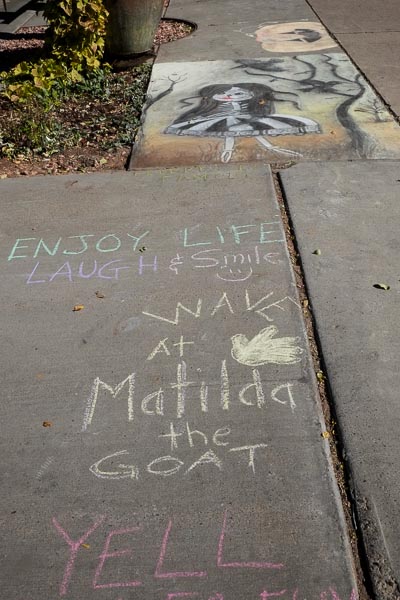 ENJOY LIFE
LAUGH & Smile
WAVE
AT
Matilda
the
GOAT
YELL